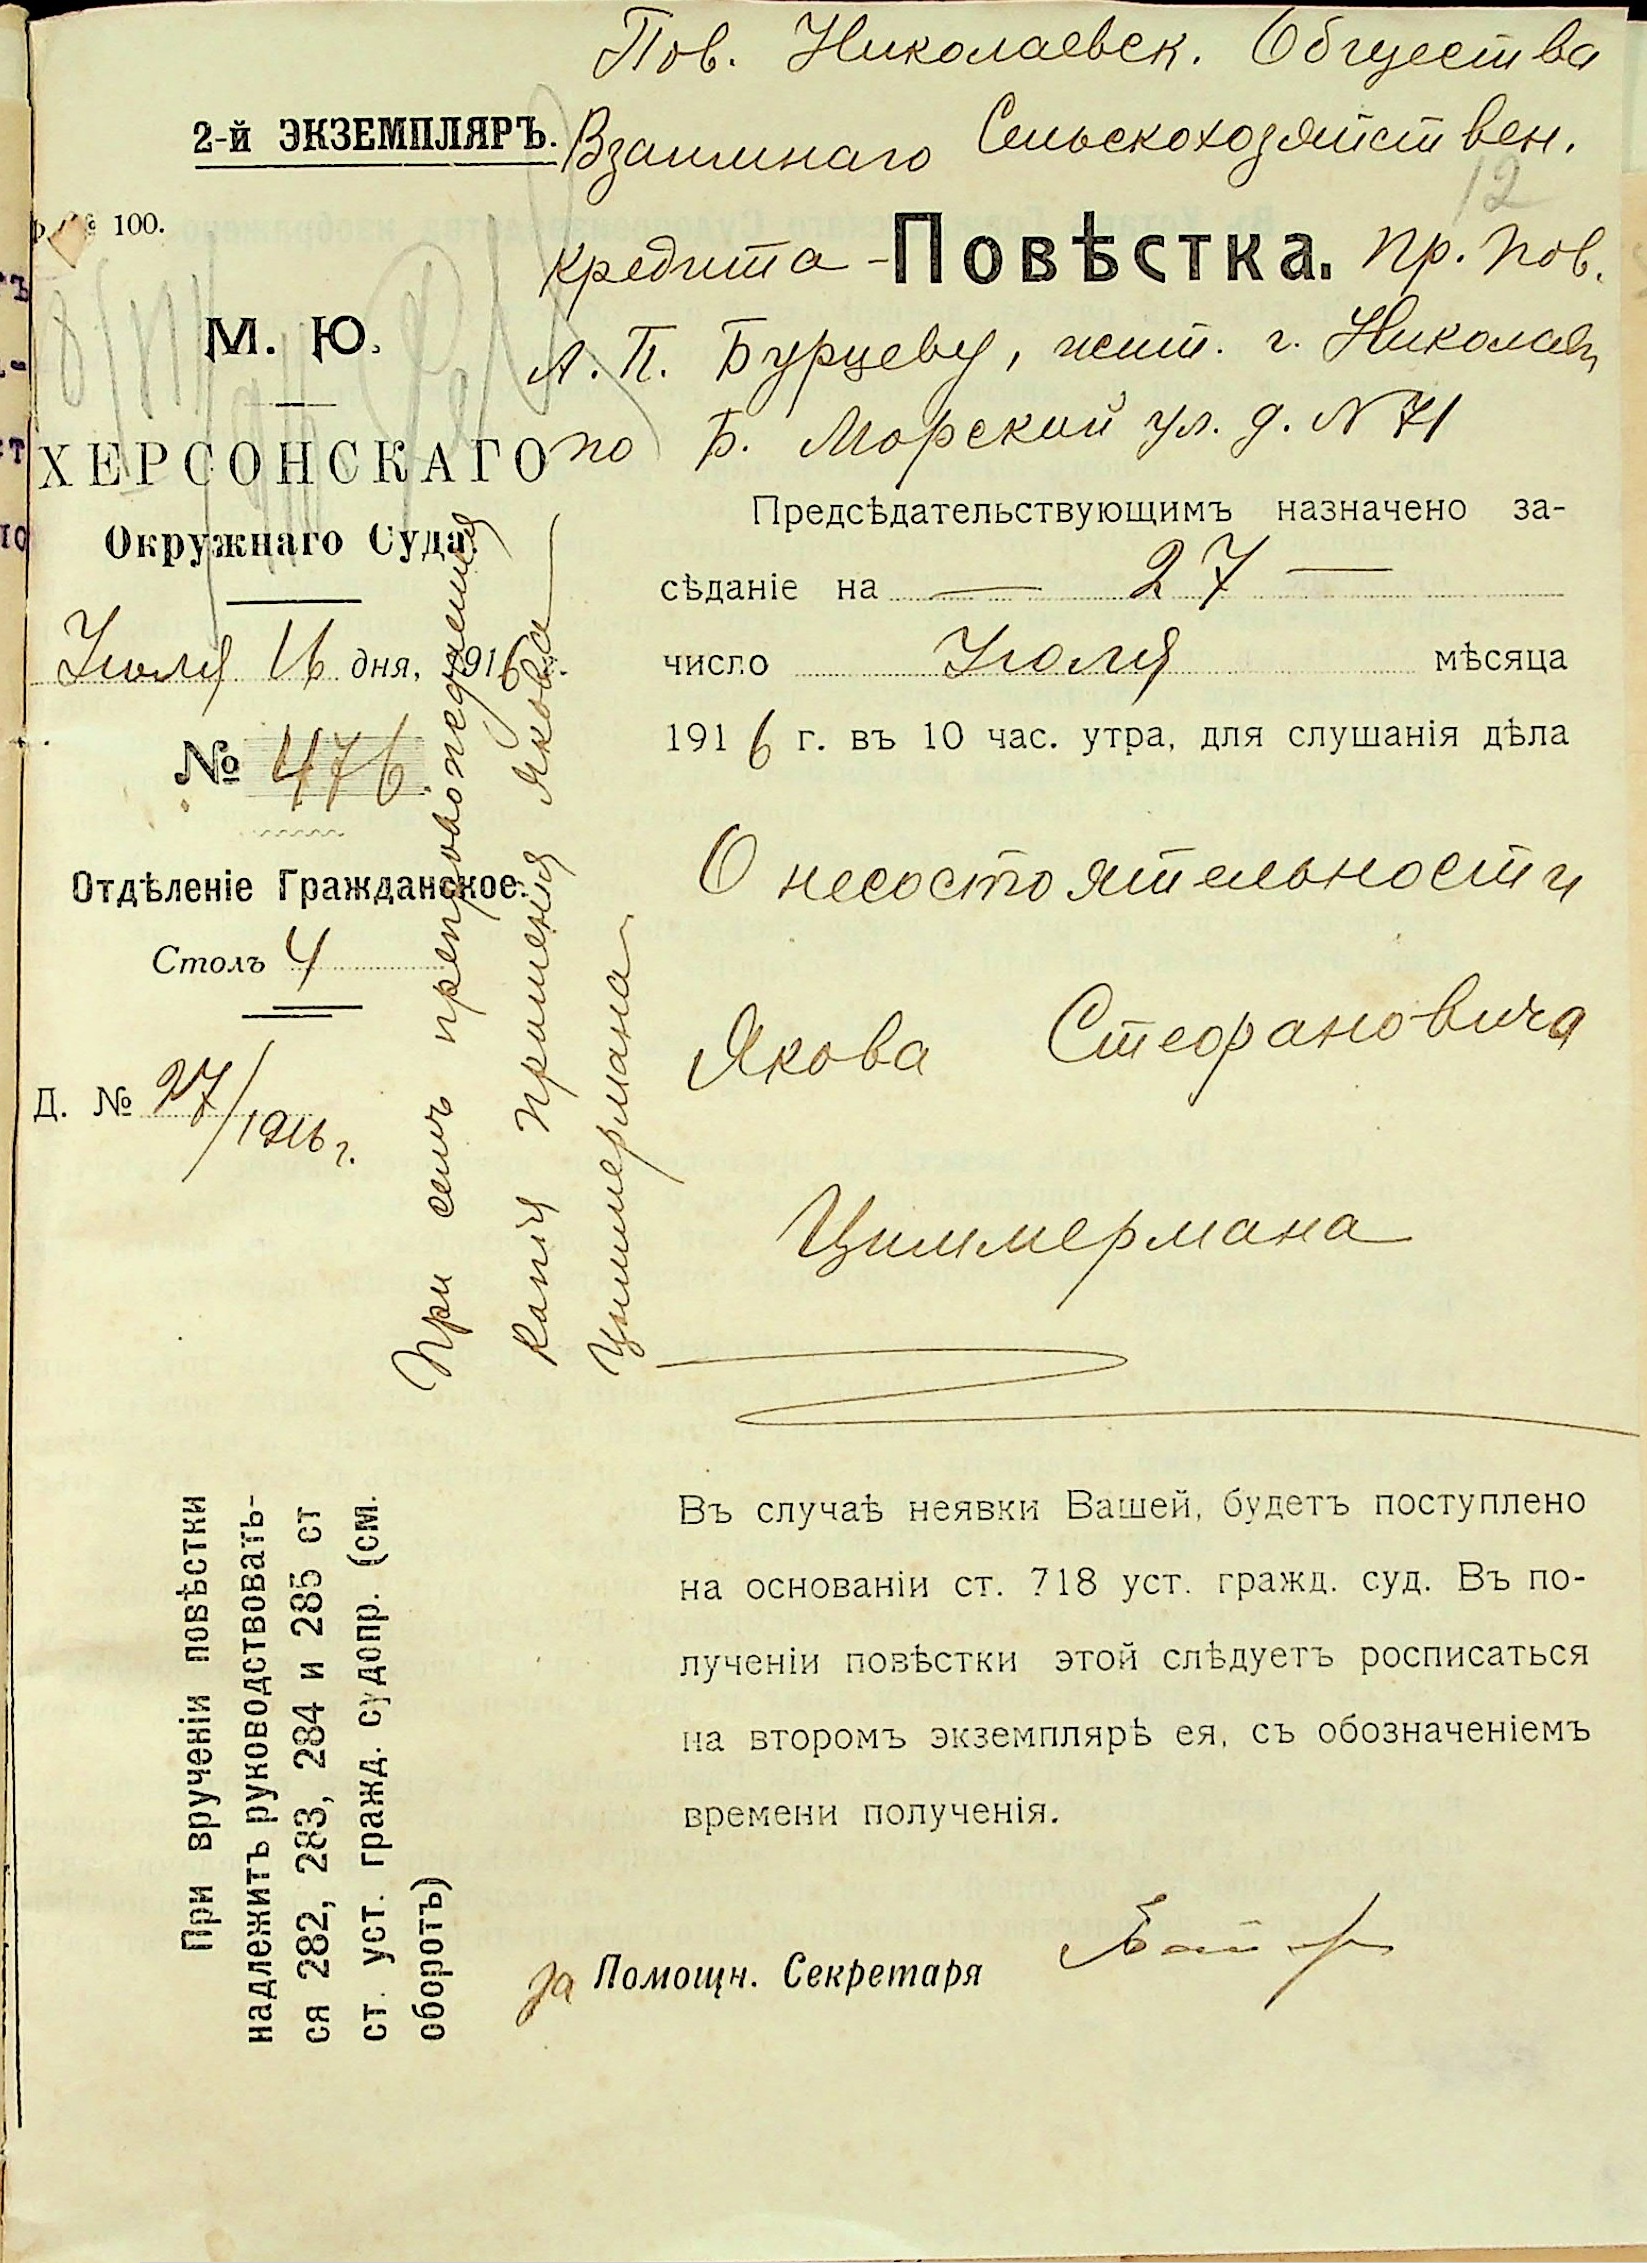 Пов. Николаевск. Общества
2-й ЭКЗЕМПЛЯРЪ.
Взаимнаго Сельскохозяйствен.
12
№ 100.
кредита - Повѣстка. пр. пов.
М. Ю.
А. П. Бурцеву, жит. г. Николаев
ХЕРСОНСКАГО
по Б. Морской ул. д. N 71
Окружнаго Суда.
Предсѣдательствующимъ назначено за-
сѣданіе на — 27 —
Июля 16 дня, 1916 г.
число Июля мѣсяца
№ 476.
1916 г. въ 10 час. утра, для слушанія дѣла
Отдѣленіе Гражданское.
О несостоятельности
Столъ 4
Якова Стефановича
Д. № 27/1916 г.
Циммермана
При семъ препровождения
копия прошения Якова
Циммермана
При врученіи повѣстки
надлежитъ руководствовать-
ся 282, 283, 284 и 285 ст
ст. уст. гражд. судопр. (см.
оборотъ)
Въ случаѣ неявки Вашей, будетъ поступлено
на основаніи ст. 718 уст. гражд. суд. Въ по-
лученіи повѣстки этой слѣдуетъ росписаться
на второмъ экземплярѣ ея, съ обозначеніемъ
времени полученія.
за Помощн. Секретаря